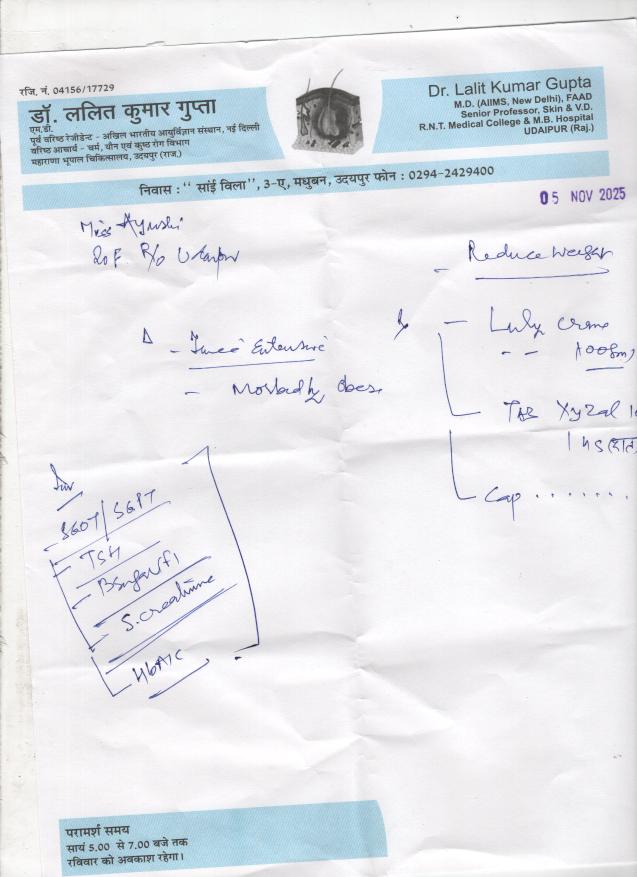 रजि. नं. 04156/17729
डॉ. ललित कुमार गुप्ता
एम.डी.
पूर्व वरिष्ठ रेजीडेन्ट - अखिल भारतीय आयुर्विज्ञान संस्थान, नई दिल्ली
वरिष्ठ आचार्य - चर्म, यौन एवं कुष्ठ रोग विभाग
महाराणा भूपाल चिकित्सालय, उदयपुर (राज.)
Dr. Lalit Kumar Gupta
M.D. (AIIMS, New Delhi), FAAD
Senior Professor, Skin & V.D.
R.N.T. Medical College & M.B. Hospital
UDAIPUR (Raj.)
निवास : '' सांई विला'', 3-ए, मधुबन, उदयपुर फोन : 0294-2429400
05 NOV 2025
Miss Ayushi
F R/o Udaipur
- Reduce weight
Δ - Extensive
- Morbidly obese
- Luly creme
- -
- Tab Xyzal
1 HS (रात)
Cap .......
Inv
- SGOT/SGPT
- TSH
- Bsugar (F)
- S. creatinine
- HbA1c
परामर्श समय
सायं 5.00 से 7.00 बजे तक
रविवार को अवकाश रहेगा।